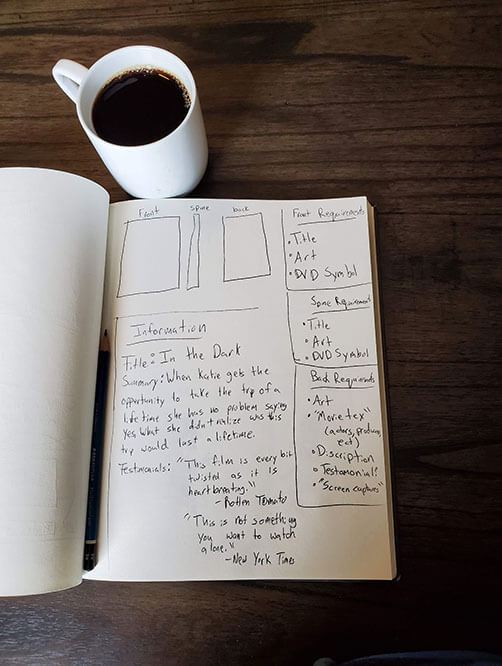 Front spine back
Information
Title: In the Dark
Summary: When Katie gets the
opportunity to take the trip of a
lifetime she has no problem saying
yes, what she didn't realize was this
trip would last a lifetime.
Testimonials: "This film is every bit
twisted as it is
heartbreaking."
-Rotten Tomato
"This is not something
you want to watch
alone."
-New York Times
Front Requirements
•Title
•Art
•DVD Symbol
Spine Requirement
•Title
•Art
•DVD Symbol
Back Requirements
•Art
•"Movie tex"
(actors, produce,
ect)
•Discription
•Testomonials
•"Screen captures"